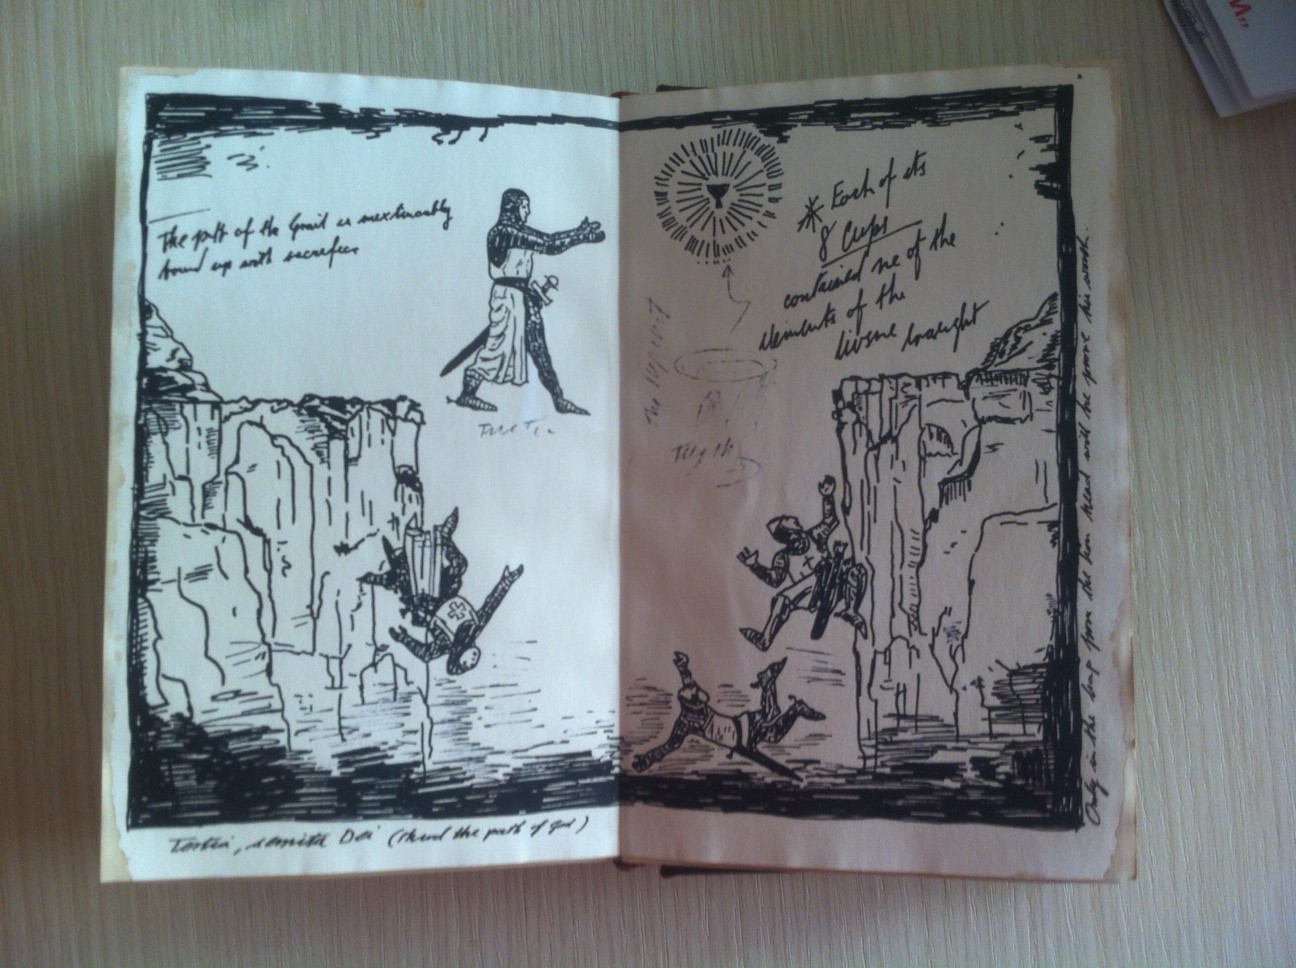 The path of the Grail is inextricably
bound up with sacrifice
* Each of its
8 Cups
contained one of the
elements of the
divine draught
Tertia, semita Dei (third the path of God)
Only in the leap from the lion head will he prove his worth.
M,,